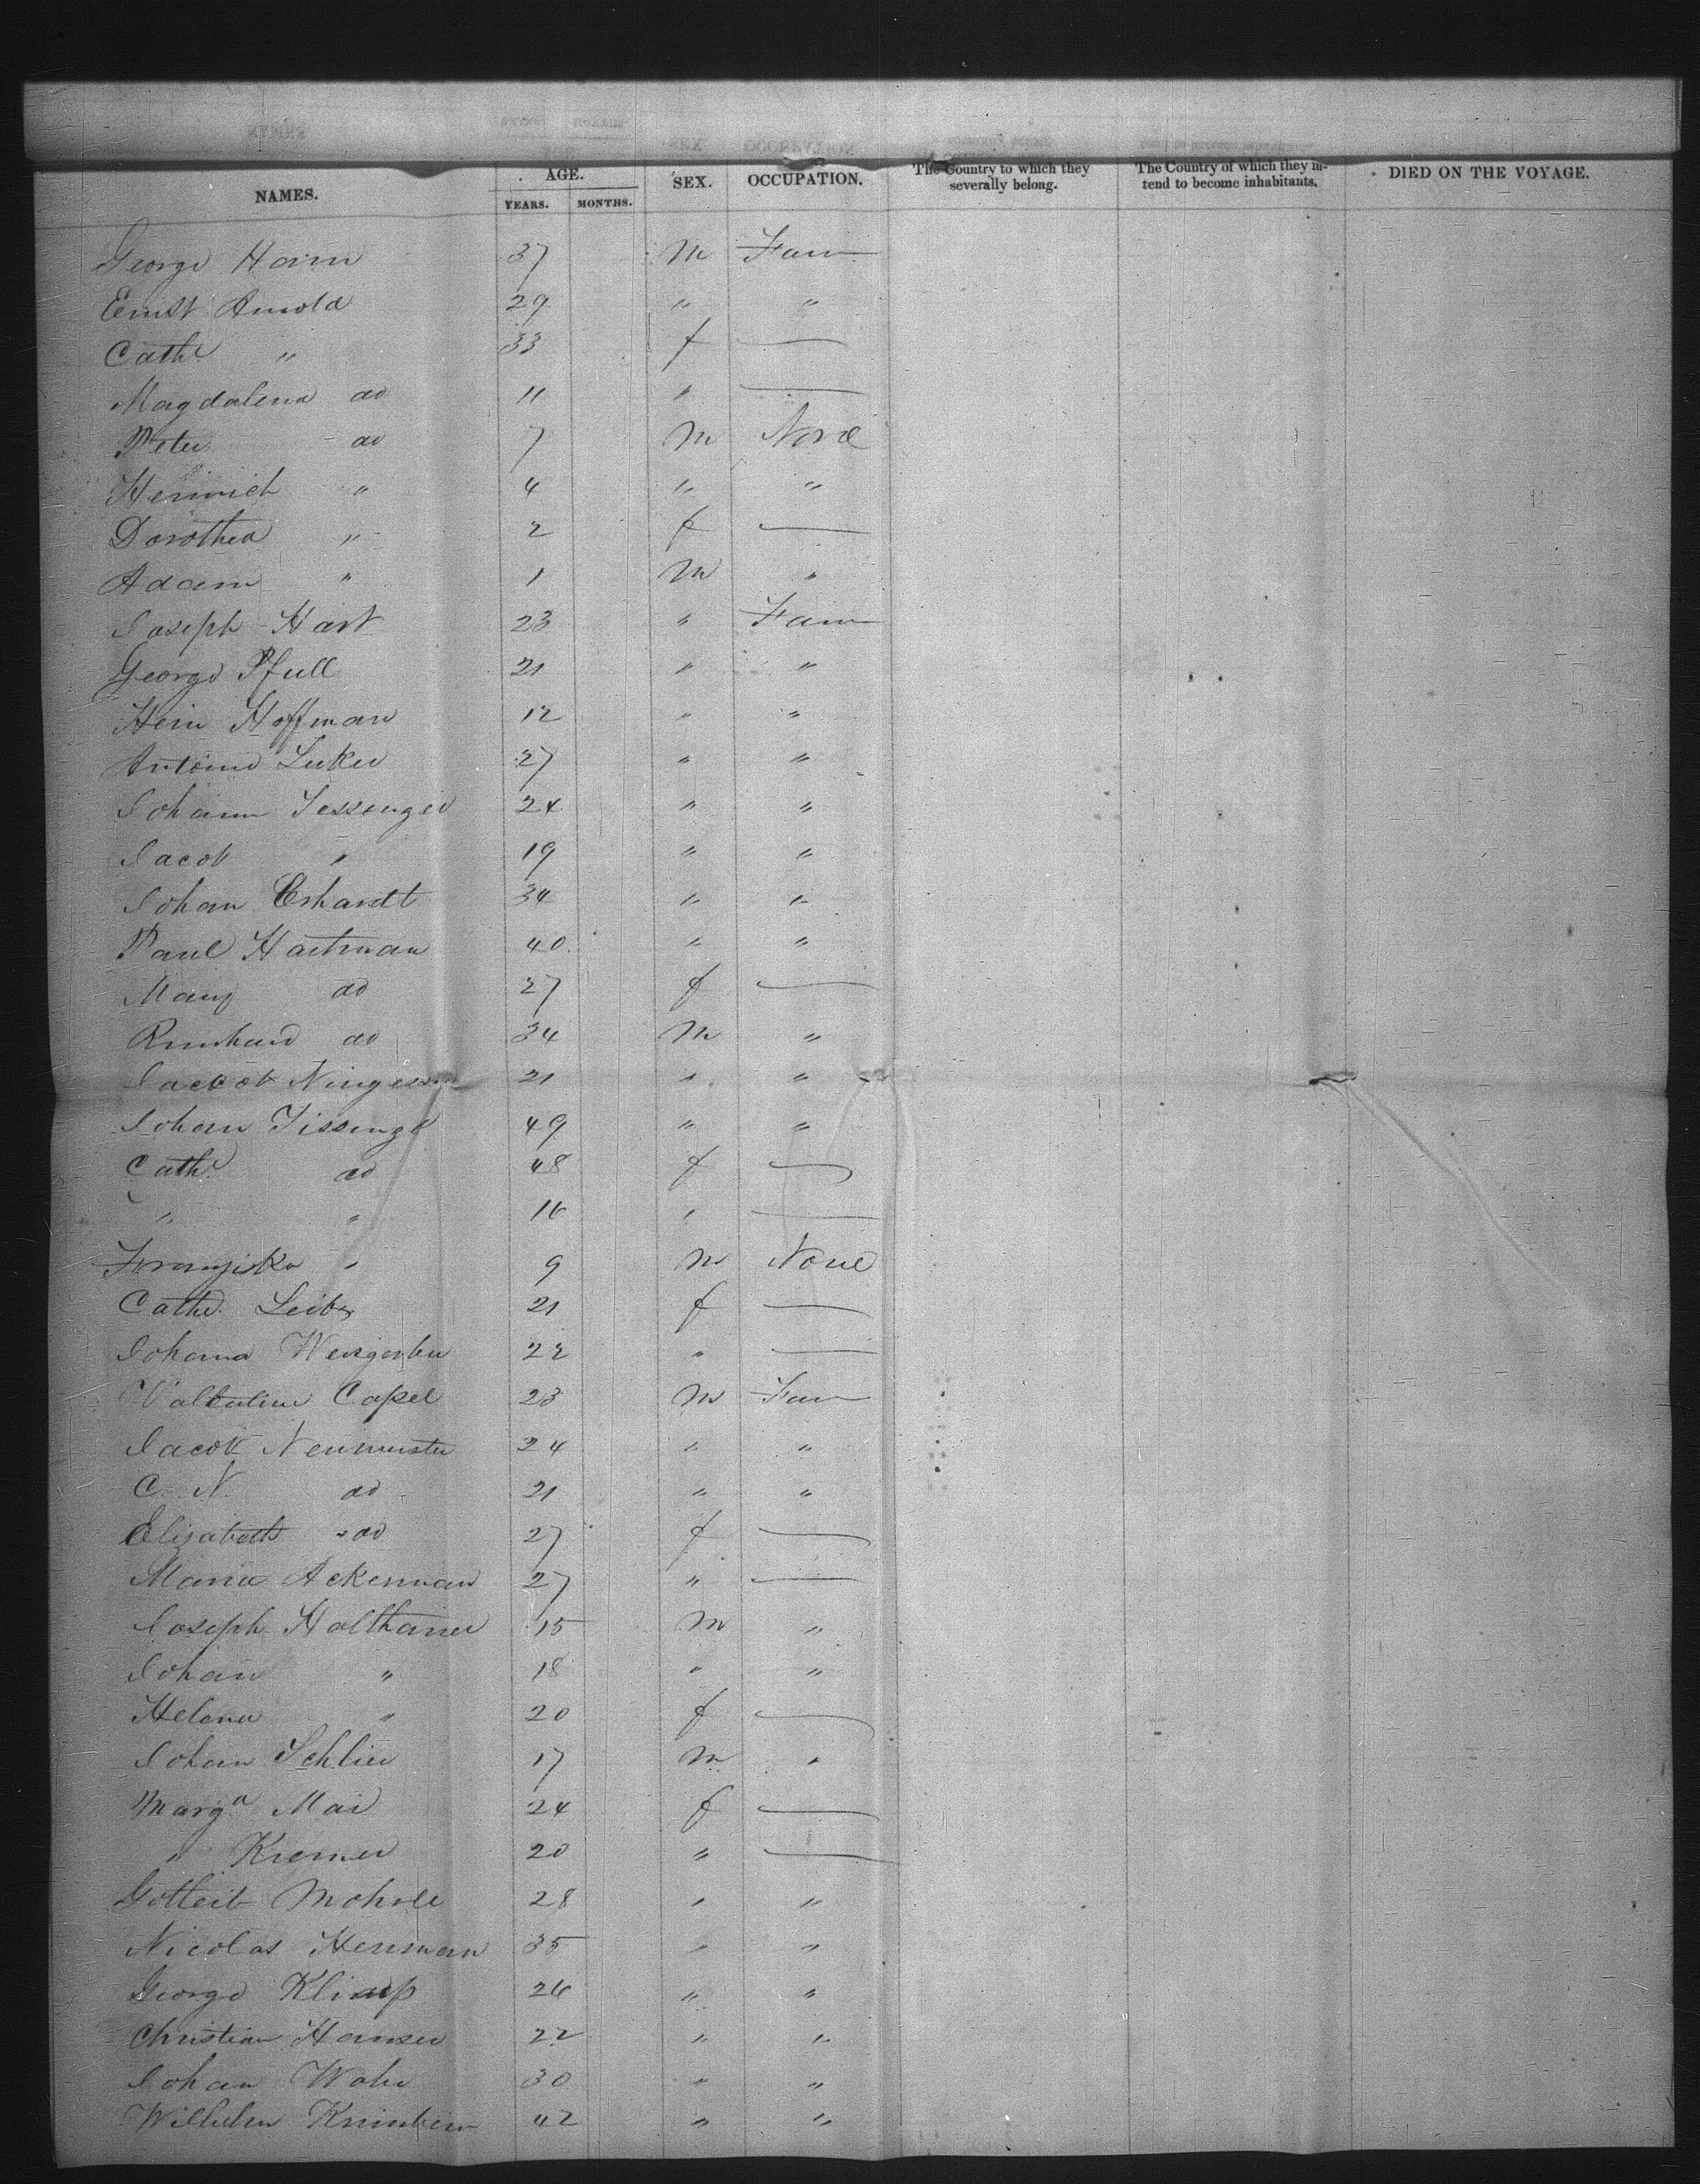 NAMES. AGE. YEARS. MONTHS. SEX. OCCUPATION. The Country to which they severally belong. The Country of which they in- tend to become inhabitants. DIED ON THE VOYAGE.
George Hann 37 M Farm
Ernst Arnold 29 " "
Cathe " 33 f —
Magdalena do 11 " —
Peter do 7 M None
Heinrich " 4 " "
Dorothea " 2 f —
Adam " 1 M "
Joseph Hart 23 " Farm
George Pfull 21 " "
Hein Hoffman 12 " "
Antoine Luker 27 " "
Johann Tessenger 24 " "
Jacob " 19 " "
Johan Erhardt 34 " "
Paul Hartman 40 " "
Mary do 27 f —
Reinhard do 34 M "
Jacob 21 " "
Johan 49 " "
Cathe do 48 f —
" " 16 " —
Franziska " 9 M None
Cathe 21 f —
Johana Weisgerber 22 " —
Valentine Capel 23 M Farm
Jacob Neumeister 24 " "
C. N. do 21 " "
Elizabeth do 27 f —
Maria Ackerman 27 " —
Joseph Halthaner 15 M "
Johan " 18 " "
Helena " 20 f —
Johan 17 M "
Marga Mai 24 f —
" Kremer 20 " —
Gotleib 28 " "
Nicolas Herman 35 " "
George 26 " "
Christian 22 " "
Johan 30 " "
Wilhelm 42 " "